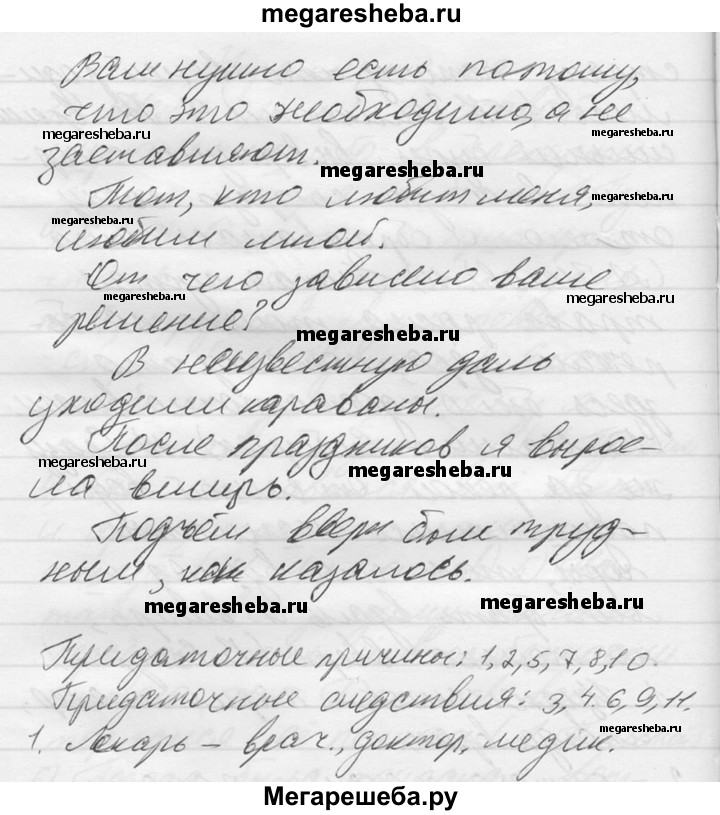 megaresheba.ru
Вам нужно есть потому,
что это необходимо, а не
megaresheba.ru megaresheba.ru
заставляют. megaresheba.ru
Тот, кто любит меня,
megaresheba.ru megaresheba.ru
любим мной.
От чего зависело ваше
megaresheba.ru megaresheba.ru
решение? megaresheba.ru
В неизвестную даль
уходили караваны.
После праздников я вырос-
megaresheba.ru megaresheba.ru
ла вширь.
Подъём вверх был труд-
ным, как казалось.
megaresheba.ru megaresheba.ru
Придаточные причины: 1, 2, 5, 7, 8, 10.
Придаточные следствия: 3, 4. 6, 9, 11.
megaresheba.ru
1. Лекарь – врач., доктор, медик.
Мегарешеба.ру